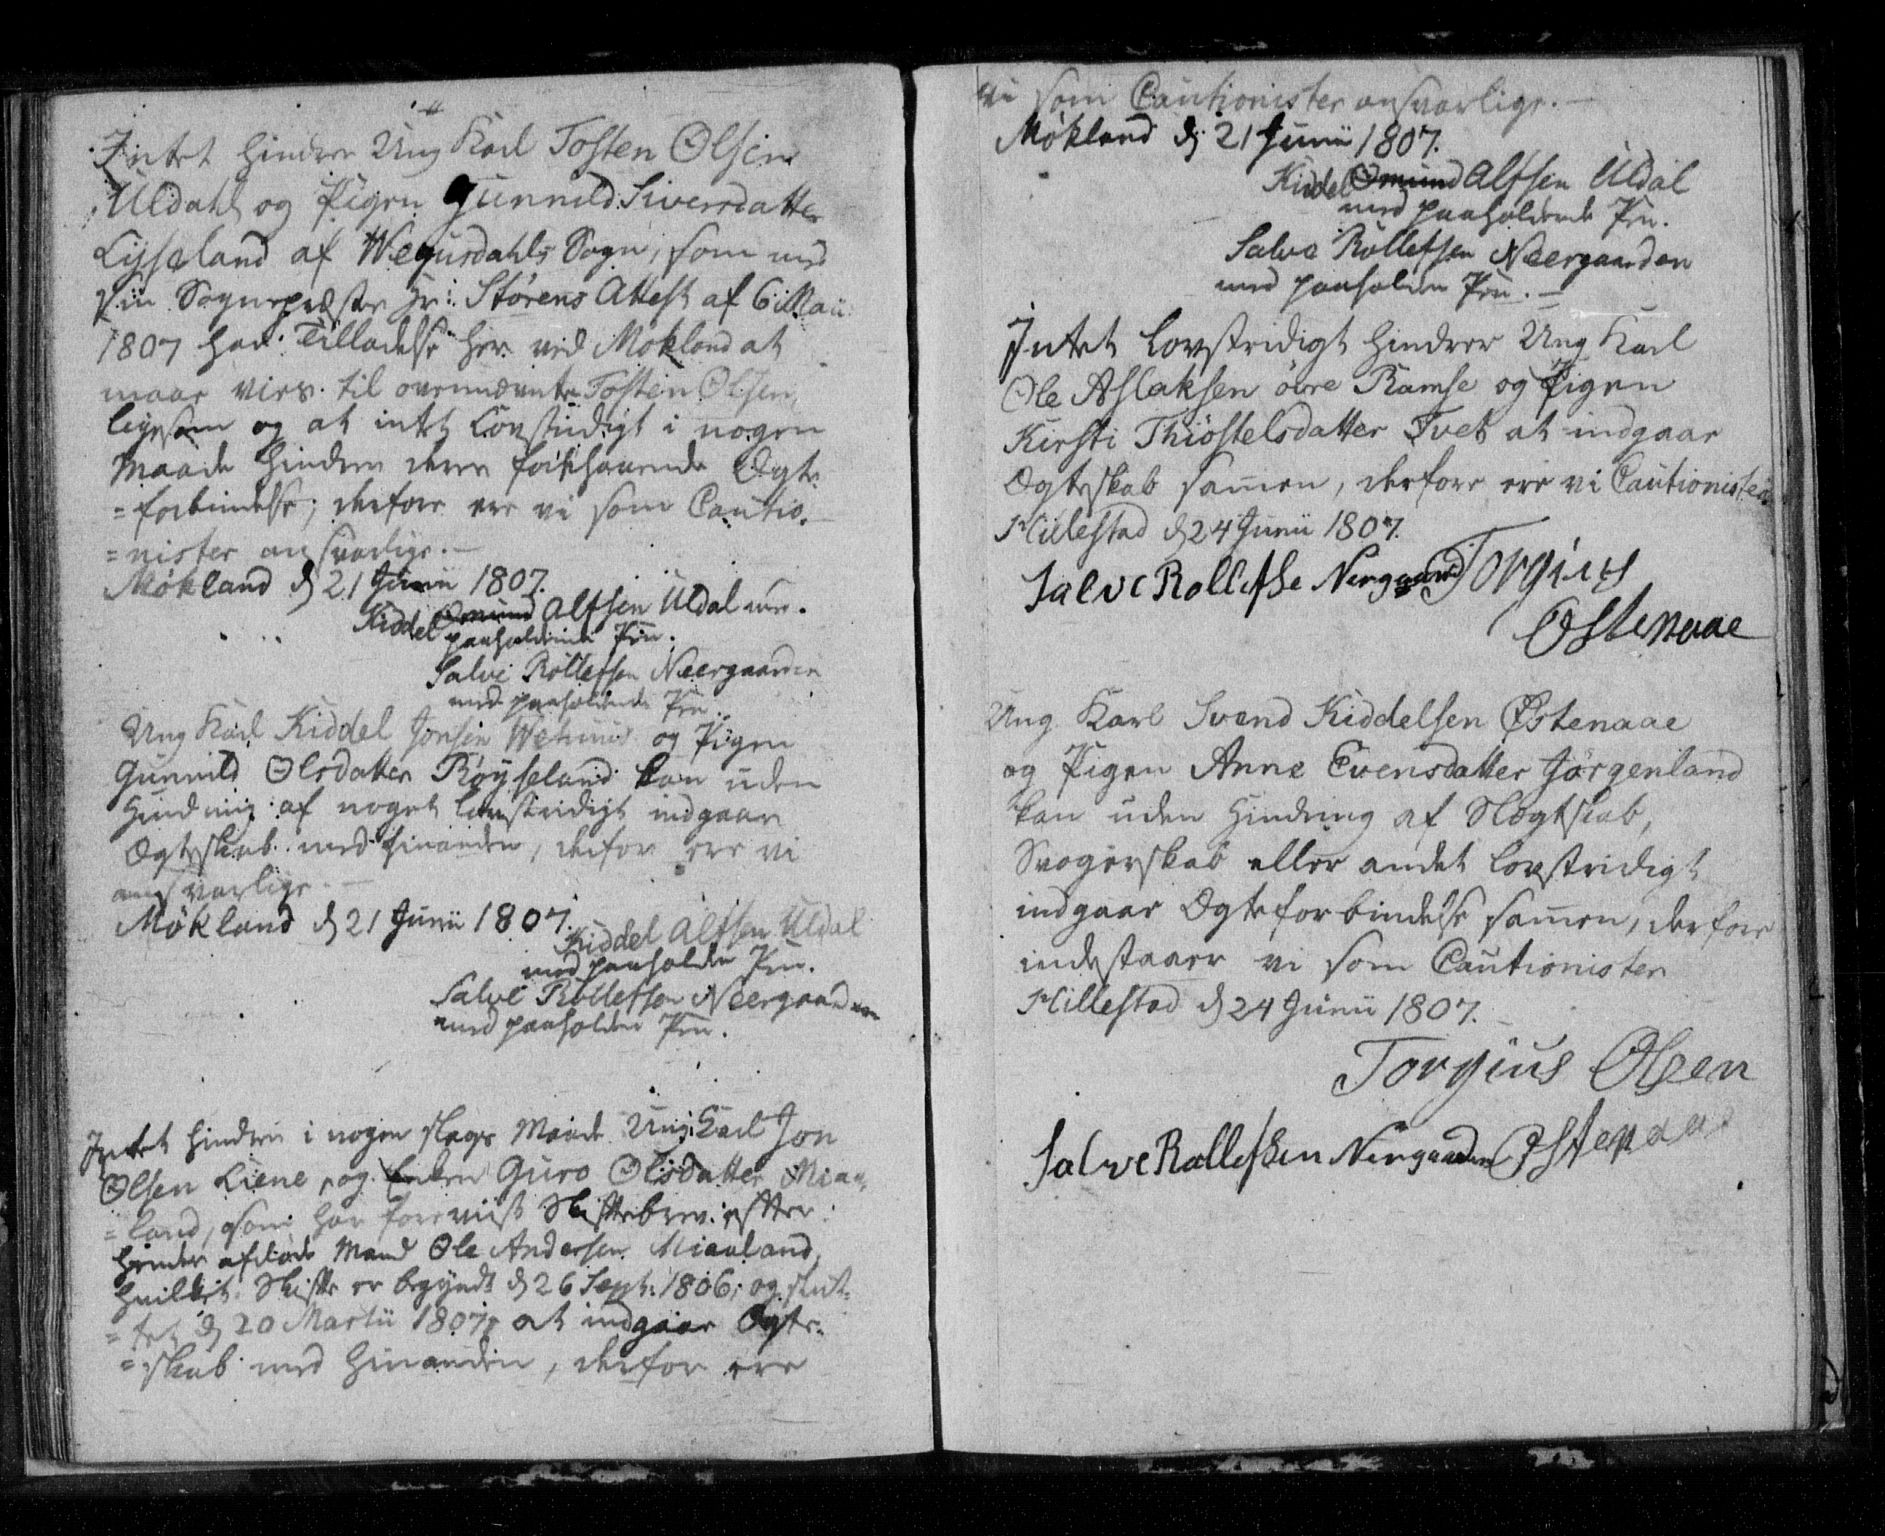 Intet hindrer Ung Karl Tosten Olsen
Uldahl og Pigen Gunnild Siversdatter
Lyseland af Wegusdahls Sogn, som med
sin Sognepræstes Hr: Størens Attest af 6 Maii
1807 har Tilladelse her ved Mokland at
maae vies til ovennævnte Tosten Olsen,
ligesom og at intet Lovstridigt i nogen
Maade hindrer deres forehavende Ægte-
=forbindelse; derfore ere vi som Cautio-
=nister ansvarlige.-
Møkland d 21 Junii 1807.
Kiddel Omund Alfsen Uldal med
paaholdende Pen.
Salve Rollefsen Neergaarden
med paaholdende Pen.
Ung Karl Kiddel Jonsen Wehuus og Pigen
Gunnild Olsdatter Røyseland kan uden
Hindring af noget lovstridigt indgaae
Ægteskab med hinanden, derfor ere vi
ansvarlige.-
Møkland d 21 Junii 1807.
Kiddel Alfsen Uldal
med paaholden Pen.
Salve Rollefsen Neergaarden
med paaholden Pen.
Intet hindrer i nogen slags Maade Ung Karl Jon
Olsen Liene, og Enken Guro Olsdatter Miaa-
=land, som har foreviist Skiftebrev efter
hendes afdøde Mand Ole Andersen Miaaland,
hvilket Skifte er begyndt d 26 Sept: 1806, og slut-
=tet d 20 Martii 1807, at indgaae Ægte-
=skab med hinanden, derfor ere
vi som Cautionister ansvarlige.-
Møkland d 21 Junii 1807.
Kiddel Omund Alfsen Uldal
med paaholdende Pen.
Salve Rollefsen Neergaarden
med paaholden Pen.-
Intet lovstridigt hindrer Ung Karl
Ole Aslaksen øvre Ramse og Pigen
Kirsti Thiøstelsdatter Tvet at indgaae
Ægteskab samen, derfore ere vi Cautionister
Hillestad d 24 Junii 1807.
Salve Rollefse Nergaard Torgius
Ostenaae
Ung Karl Svend Kiddelsen Østenaae
og Pigen Anne Evensdatter Jørgenland
kan uden Hindring af Slægtskab,
Svogerskab eller andet lovstridigt
indgaae Ægteforbindelse samen, derfore
indestaaer vi som Cautionister
Hillestad d 24 Junii 1807.
Torgius Olsen
Salve Rollefsen Nergaarden Ostenaae